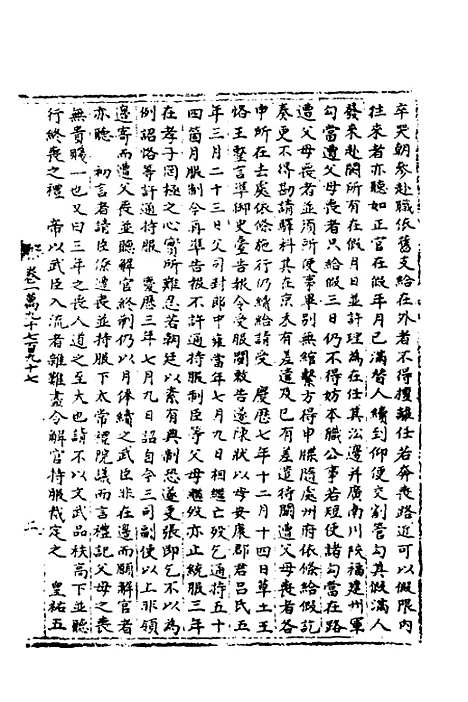 卒哭朝參赴職依舊支給在外者不得擅離任若奔喪路近可以假限內
往來者亦聽如正官在假年月已滿替人續到仰便交割管勾其假滿人
發來赴闕所有在假月日並許理為在任其㳂邊并廣南川陝福建州軍
勾當遭父母喪者只給假三日仍不得妨本職公事若短使諸勾當在路
遭父母喪者並須所使事畢別無綰繫方得申牒隨處州府依條給假訖
奏更不得勘請驛料其在京未有差遣及已有差遣待闕遭父母喪者各
申所在去處依條施行仍續給請受 慶曆七年十二月十四日草土王
恪王慤言準御史臺告報令受服闋敕告遂陳狀以母安康郡君呂氏五
年三月二十三日父司封郎中雍當年七月九日相繼亡歿乞通持五十
四箇月服制今再準告報不許通持服制臣等父母繼歿亦止統服三年
在孝子罔極之心實所難忍若朝廷以素有典制恐遂更張即乞不以為
例詔恪等許通持服 慶曆三年七月九日詔自今三司副使以上非領
邊寄而遭父喪並聽解官終制仍以月俸續之武臣非在邊而願解官者
亦聽 初言者請臣僚遭喪並持服下太常禮院議而言禮記父母之喪
無貴賤一也又曰三年之喪人道之至大也請不以文武品秩高下並聽
行終喪之禮 帝以武臣入流者雜難盡令解官持服裁定之 皇祐五
卷二萬九十七百九十七
二